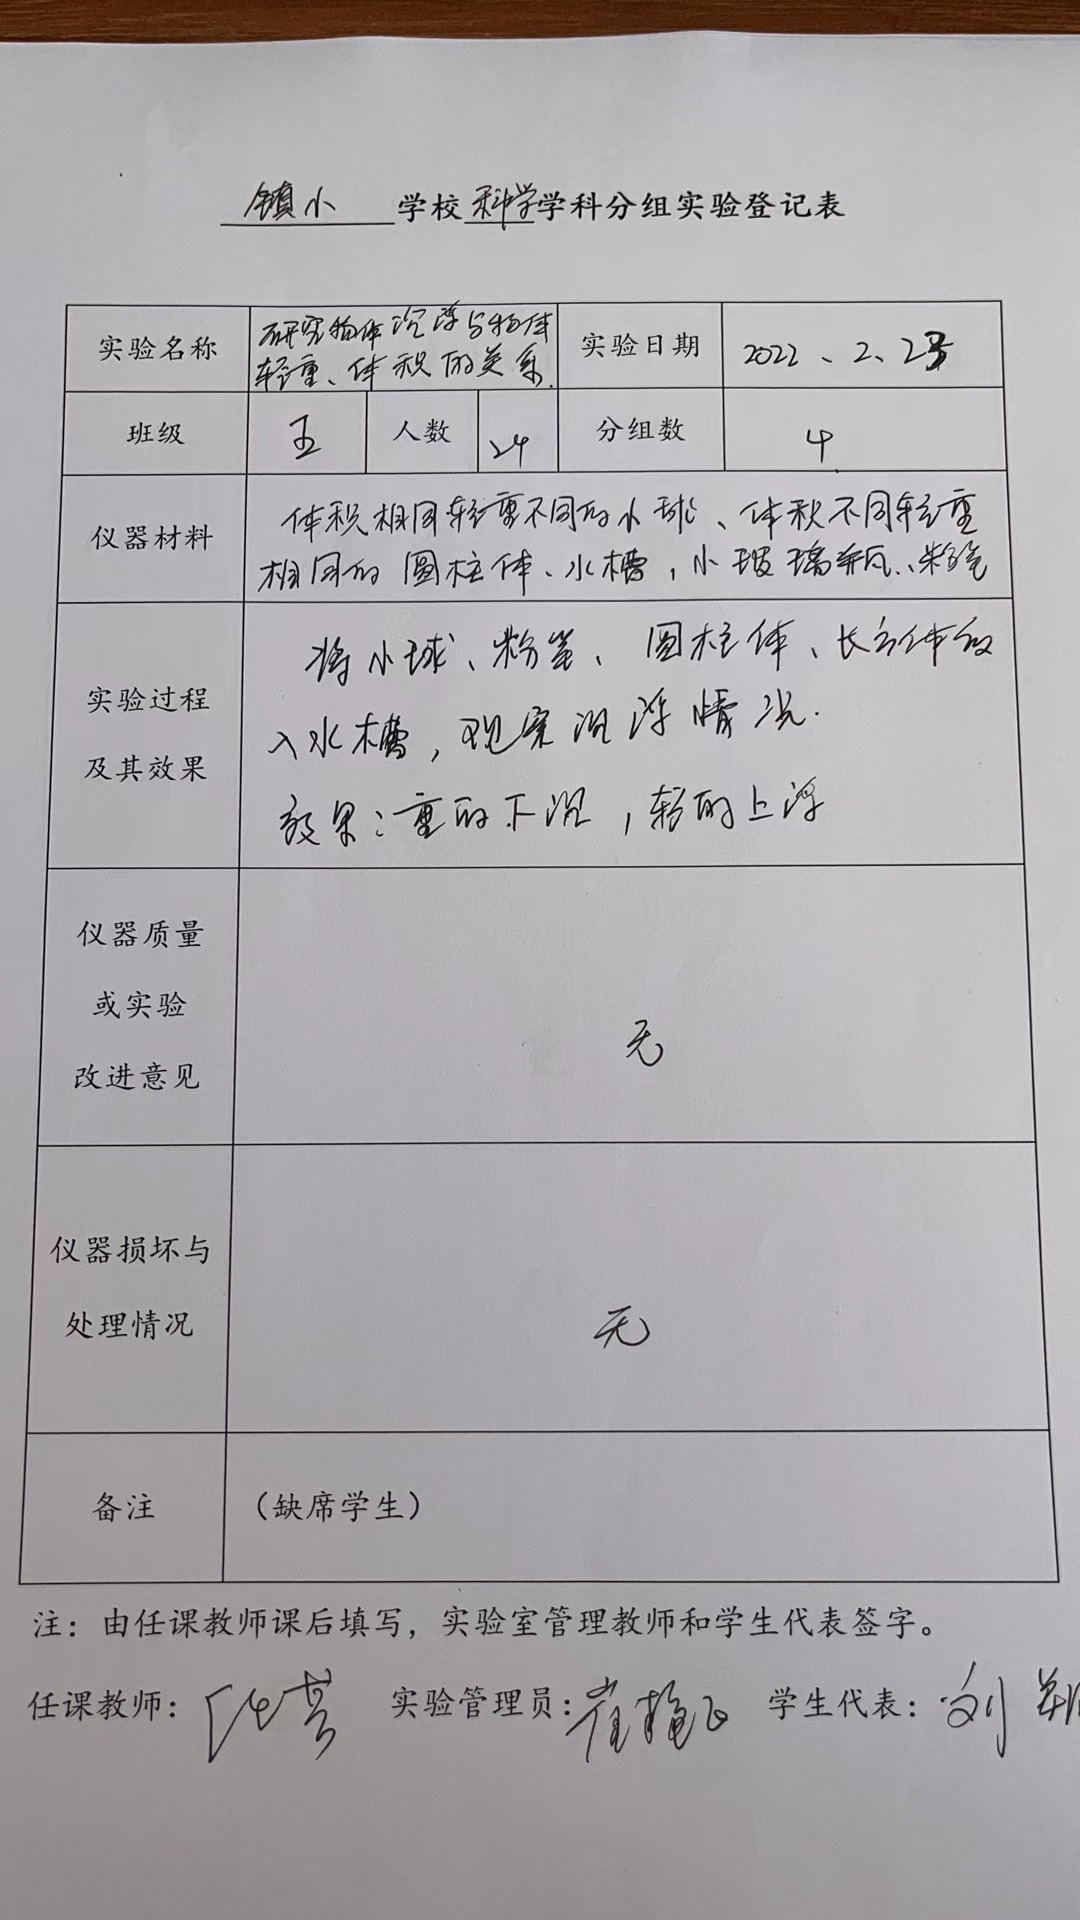 镇小 学校 科学 学科分组实验登记表
实验名称 研究物体沉浮与物体
轻重、体积的关系. 实验日期 2022、2、23
班级 五 人数 24 分组数 4
仪器材料 体积相同轻重不同的小球、体积不同轻重
相同的圆柱体、水槽,小玻璃瓶、粉笔
实验过程
及其效果
将小球、粉笔、圆柱体、长方体放
入水槽,观察沉浮情况.
效果:重的下沉,轻的上浮
仪器质量
或实验
改进意见
无
仪器损坏与
处理情况
无
备注 (缺席学生)
注:由任课教师课后填写,实验室管理教师和学生代表签字。
任课教师: 实验管理员:崔 学生代表:刘